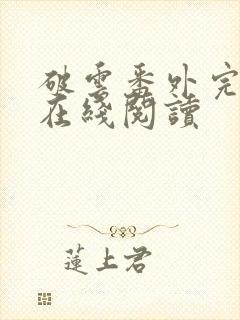 破雲番外完
在綫閱讀
蓮上君